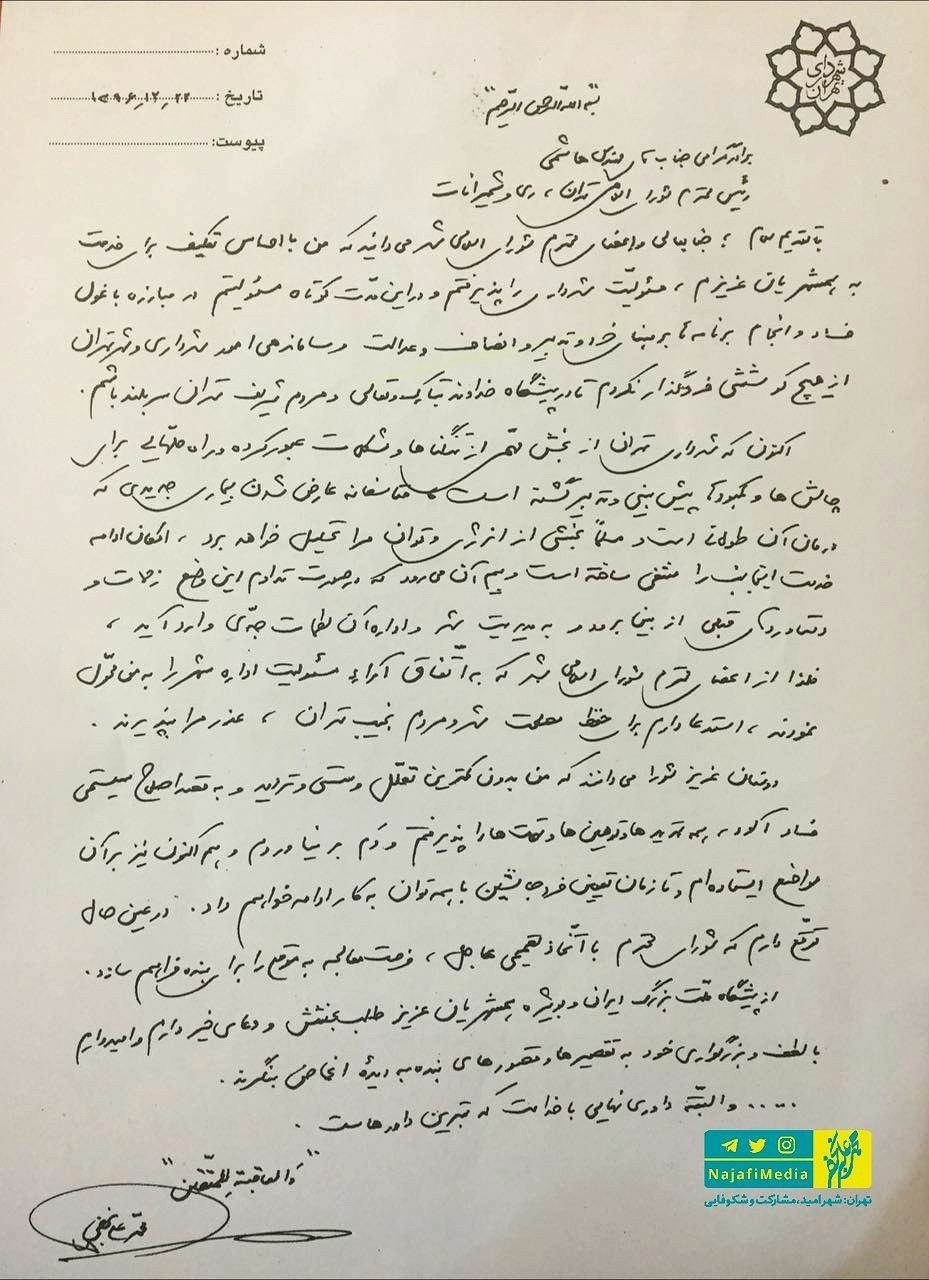 شهرداری تهران
شماره :
تاریخ : ۱۳۹۶٫۱۲٫۲۲
پیوست:
"بسم الله الرحمن الرحیم"
برادر گرامی جناب آقای مهندس هاشمی
رئیس محترم شورای اسلامی تهران، ری و شمیرانات
با تقدیم سلام ؛ جنابعالی و اعضای محترم شورای اسلامی شهر می‌دانید که من با احساس تکلیف برای خدمت
به همشهریان عزیزم ، مسئولیت شهرداری را پذیرفتم و در این مدت کوتاه مسئولیتم در مبارزه با غول
فساد و انجام برنامه‌ها بر مبنای خرد و تدبیر و انصاف و عدالت و ساماندهی امور شهرداری و شهر تهران
از هیچ کوششی فروگذار نکردم تا در پیشگاه خداوند تبارک و تعالی و مردم شریف تهران سربلند باشم .
اکنون که شهرداری تهران از بخش مهمی از تنگناها و مشکلات عبور کرده و راه حلهایی برای
چالش ها و کمبودها پیش بینی و تدبیر گشته است ، متاسفانه عارض شدن بیماری جدیدی که
درمان آن طولانی است و مسلماً بخشی از انرژی و توان مرا تحلیل خواهد برد ، امکان ادامه
خدمت اینجانب را منتفی ساخته است و بیم آن می‌رود که در صورت تداوم این وضع زحمات و
دستاوردهای قبلی از بین برود و به مدیریت شهر و اداره آن لطمات جدّی وارد آید ،
فلذا از اعضای محترم شورای اسلامی شهر که به اتّفاق آراء مسئولیت اداره شهر را به من محوّل
نمودند ، استدعا دارم برای حفظ مصلحت شهر و مردم نجیب تهران ، عذر مرا بپذیرند .
دوستان عزیز شورا می‌دانند که من بدون کمترین تعلّل و سستی و تردید و به قصد اصلاح سیستمی
فساد آلود ، همه تهدیدها و توهین ها و تهمت ها را پذیرفتم و دَم بر نیاوردم و هم اکنون نیز بر آن
مواضع ایستاده‌ام و تا زمان تعیین فرد جانشین با همه توان به کار ادامه خواهم داد . در عین حال
توقّع دارم که شورای محترم با اتّخاذ تصمیمی عاجل ، فرصت معالجه به موقع را برای بنده فراهم سازد .
از پیشگاه ملّت بزرگ ایران و بویژه همشهریان عزیز طلب بخشش و دعای خیر دارم و امیدوارم
با لطف و بزرگواری خود به تقصیرها و قصورهای بنده به دیدهٔ اغماض بنگرند .
..... و البتّه داوری نهایی با خداست که بهترین داورهاست .
"والعاقبة للمتّقین"
محمد علی نجفی
محمدعلی نجفی
NajafiMedia
تهران: شهر امید، مشارکت و شکوفایی